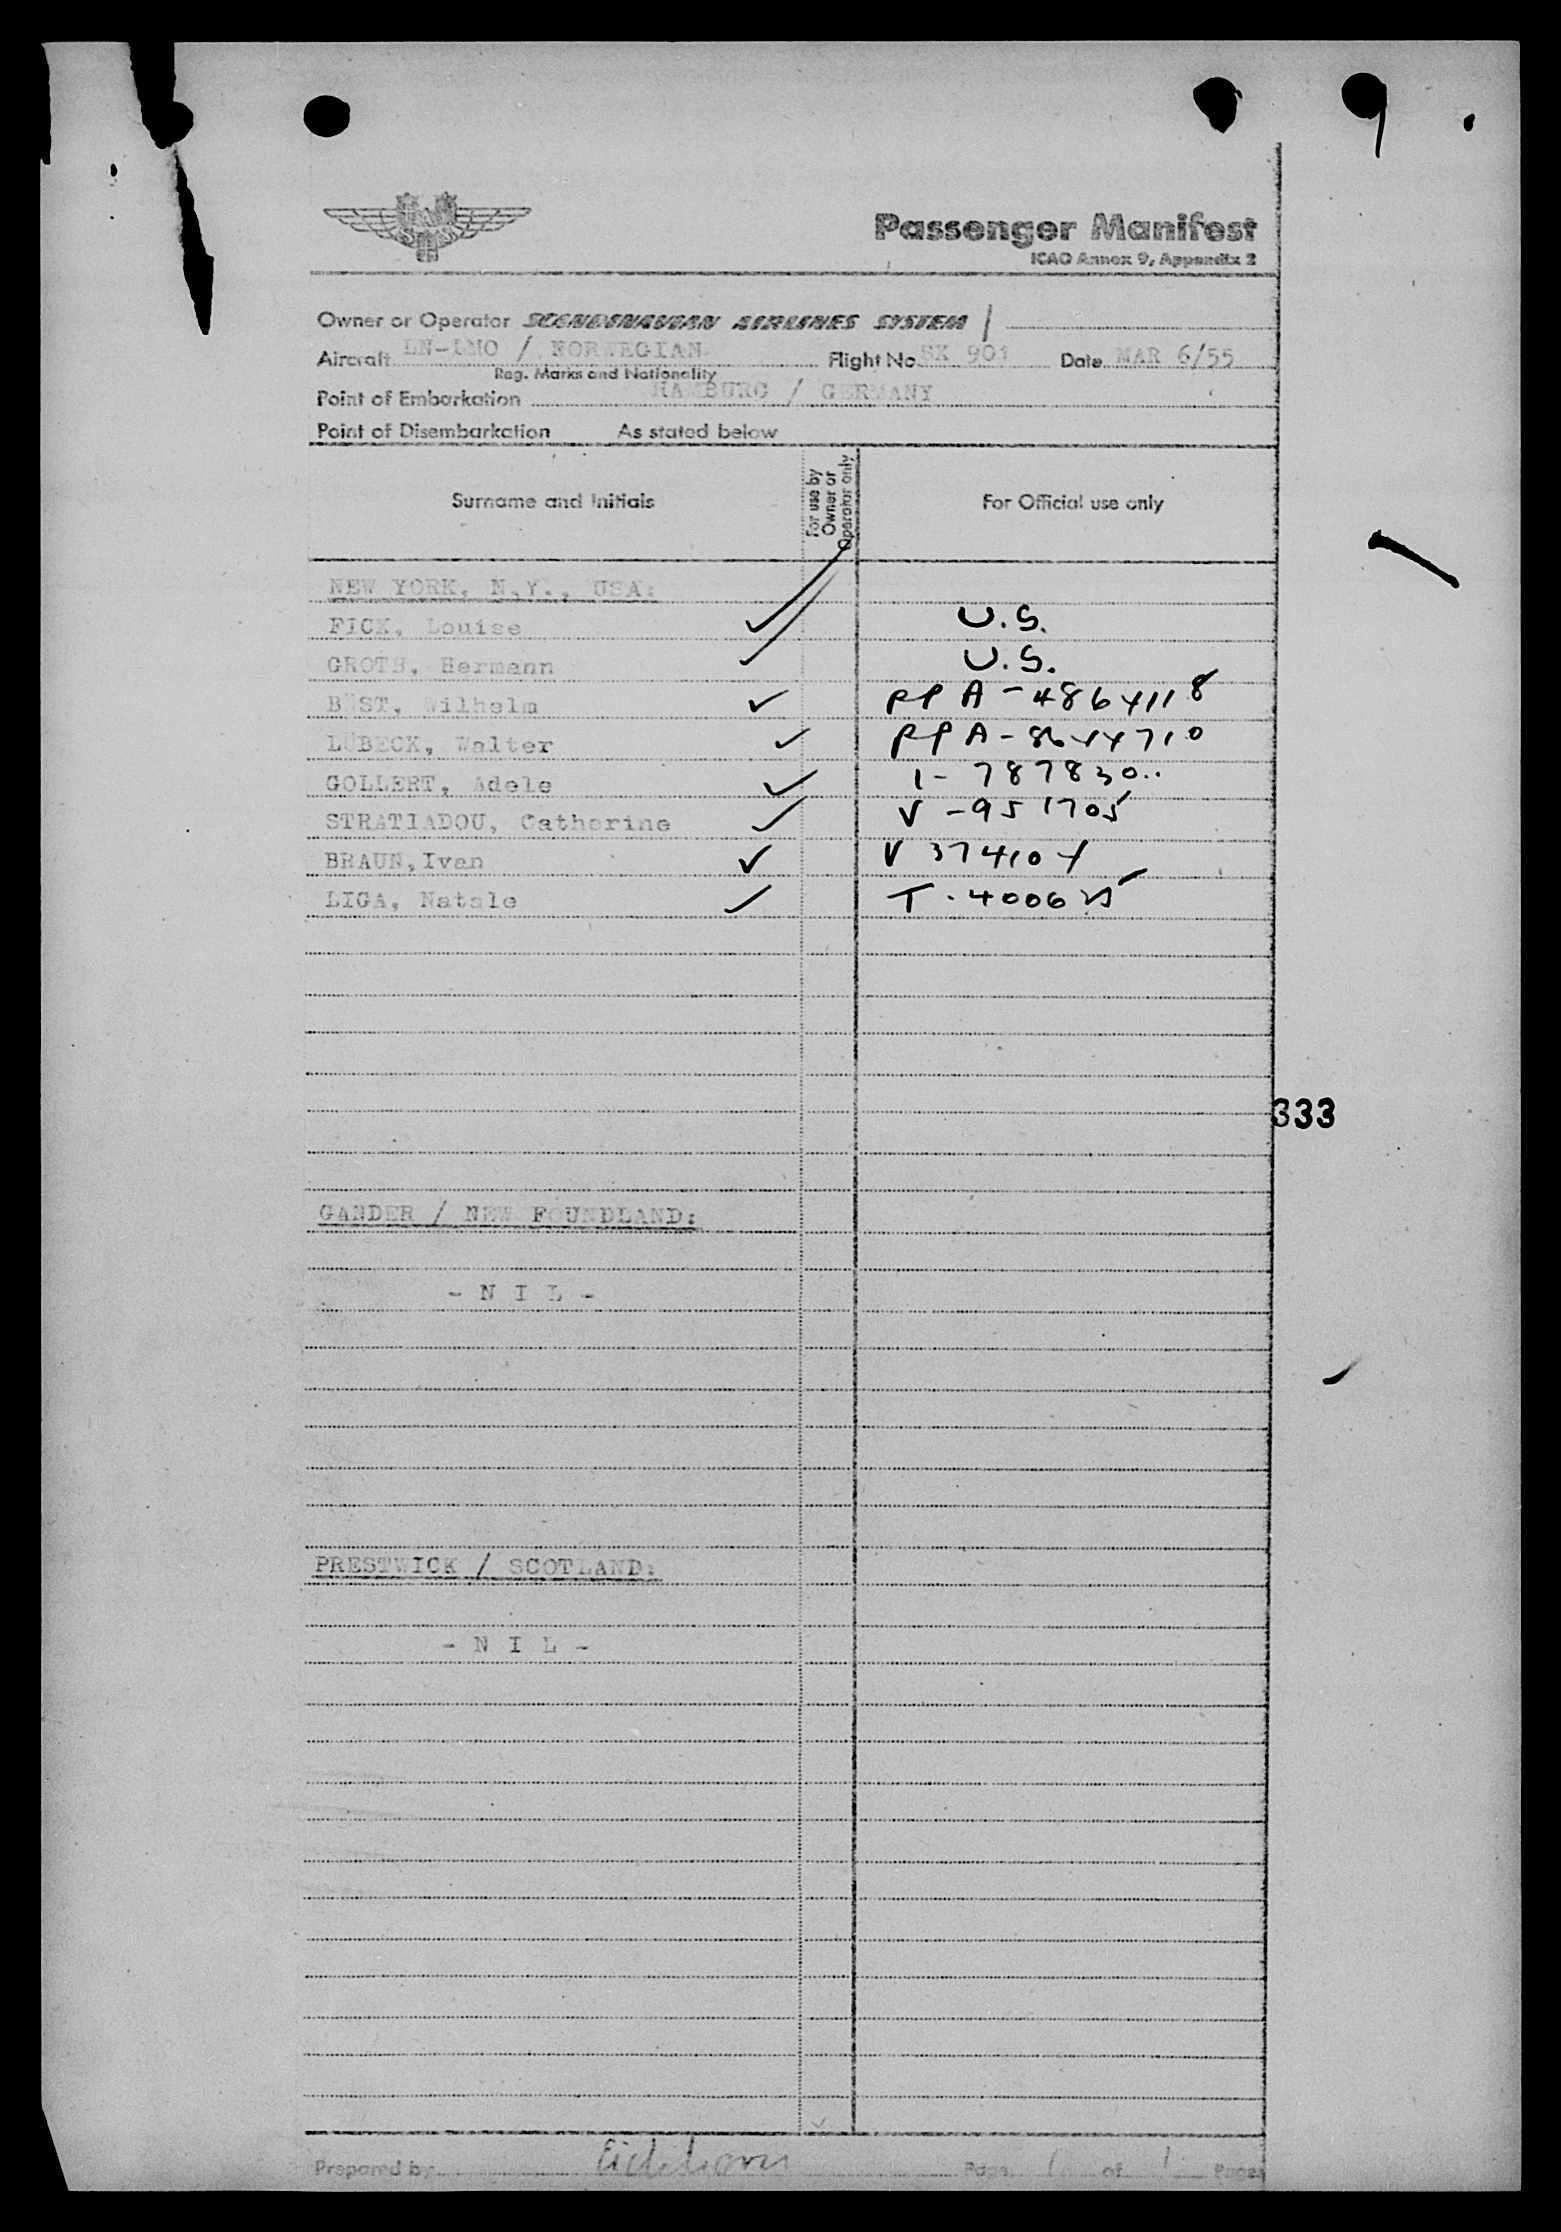 Passenger Manifest
ICAO Annex 9, Appendix 2
Owner or Operator SCANDINAVIAN AIRLINES SYSTEM
Aircraft LN-LMO / NORWEGIAN Flight No. SK 901 Date MAR 6/55
Reg. Marks and Nationality
Point of Embarkation HAMBURG / GERMANY
Point of Disembarkation As stated below
Surname and Initials For use by Owner or Operator only For Official use only
NEW YORK, N.Y., USA:
FICK, Louise ✓ U.S.
GROTH, Hermann ✓ U.S.
BÜST, Wilhelm ✓ PPA-4864118
LÜBECK, Walter ✓ PPA-8644710
GOLLERT, Adele ✓ I-787830..
STRATIADOU, Catherine ✓ V-951705
BRAUN, Ivan ✓ V 374104
LIGA, Natale ✓ T-400625
333
GANDER / NEW FOUNDLAND:
- N I L -
PRESTWICK / SCOTLAND:
- N I L -
Prepared by Eichhorn Page 1 of 1 Pages